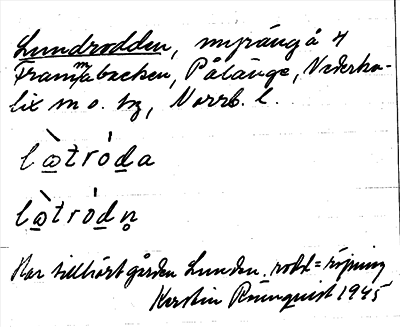 Lundrodden, myräng å 4
Frammabacken, Pålänge, Nederka-
lix sn o. tg, Norrb. l.
lὼ̲tróda̲
lὼ̲tródn̥
Har tillhört gården Lunden. rodd = röjning
Kerstin Rönnquist 1945